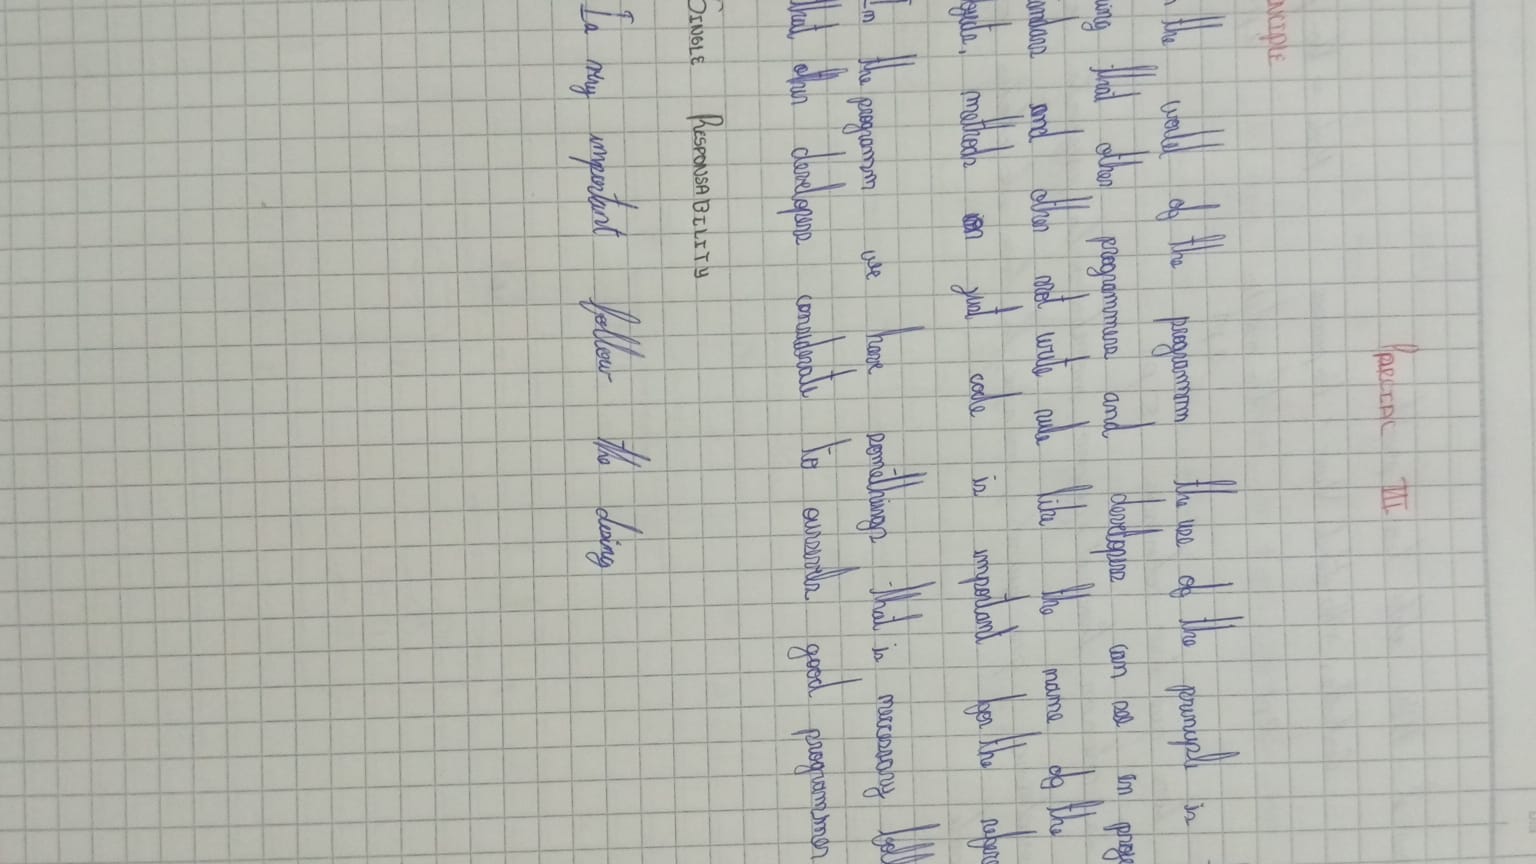 PECIAL III
NCIPLE
the would of the programm the use of the principle is
ing that other programmers and developers can see in proye
and other not write rule like the name of the
methods on just code is important for the refere
In the programm we have somethings that is neccessary foll
that other developers considerate to ourselves good programmer
SINGLE RESPONSABILITY
Is my important follow the doing